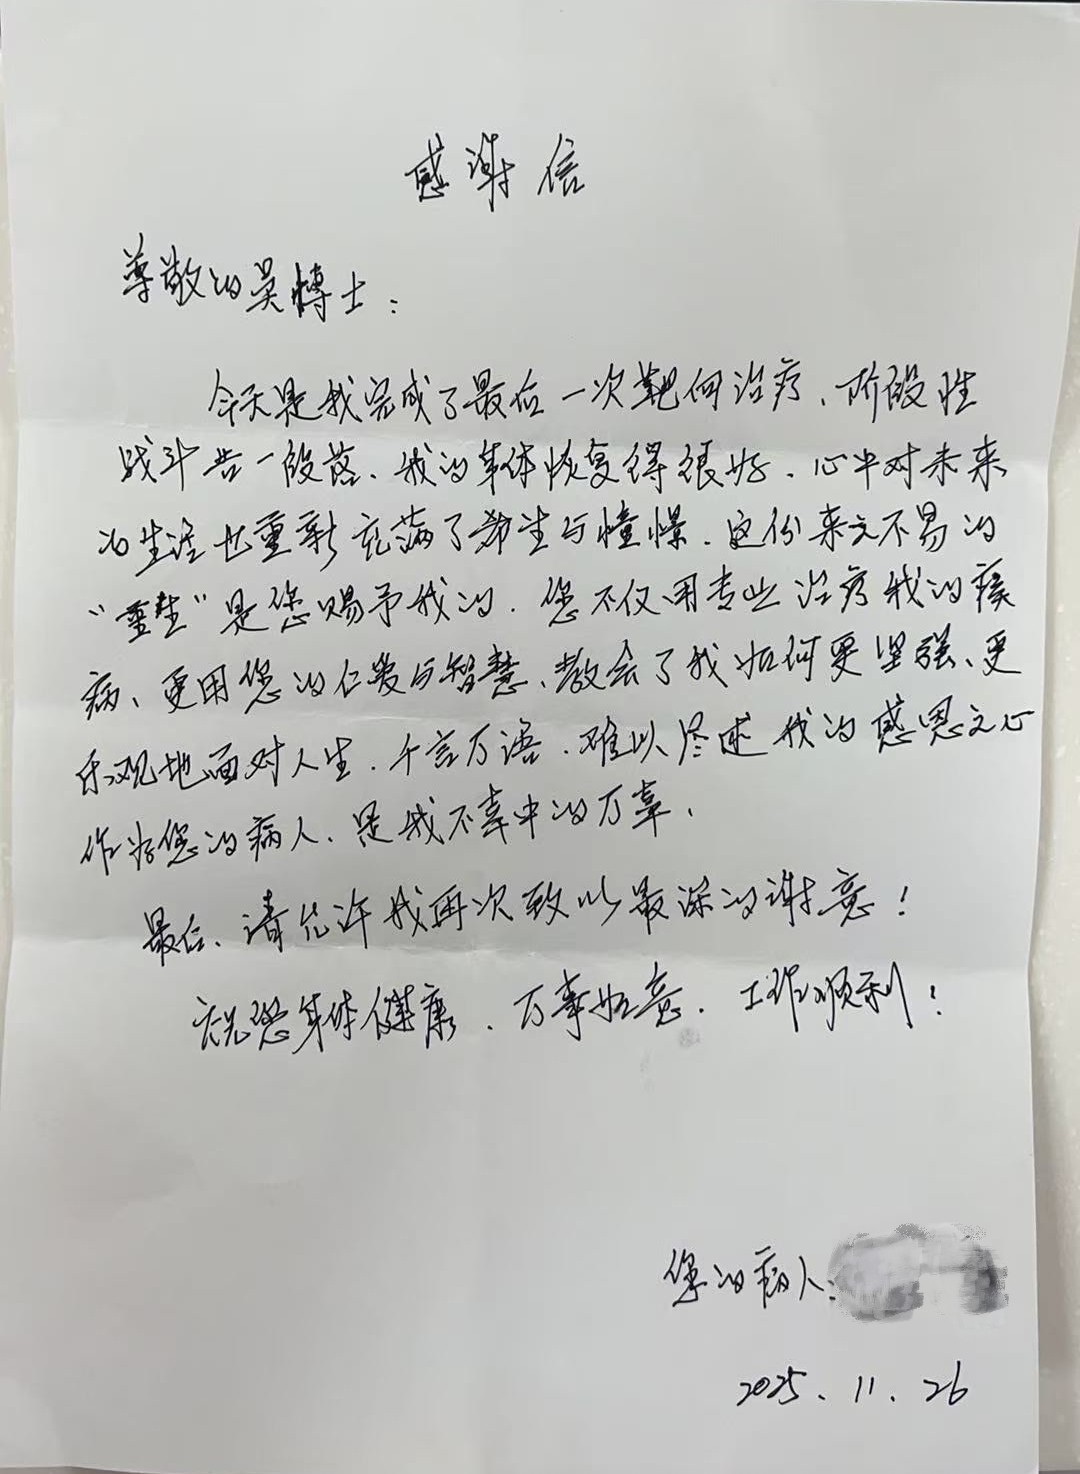 感谢信
尊敬的吴博士：
今天是我完成了最后一次靶向治疗、阶段性
战斗告一段落、我的身体恢复得很好、心中对未来
的生活也重新充满了希望与憧憬．这份来之不易的
“重生”是您赐予我的．您不仅用专业治疗我的疾
病、更用您的仁爱与智慧、教会了我如何更坚强、更
乐观地面对人生．千言万语．难以尽述我的感恩之心
作为您的病人、是我不幸中的万幸．
最后、请允许我再次致以最深的谢意！
祝您身体健康．万事如意．工作顺利！
您的病人：
2025．11．26